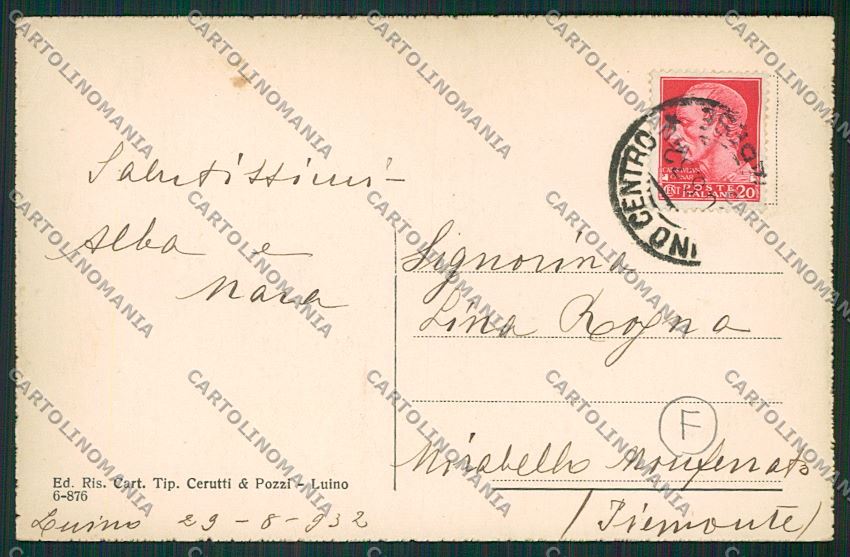 Salutissimi -
Alba e
Nara
Ed. Ris. Cart. Tip. Cerutti & Pozzi - Luino
6-876
Luino 29-8-932
INO CENTRO
CAIVS IVLIVS
CAESAR
CENT POSTE 20
ITALIANE
Signorina
Lina Rogna
F
Mirabello Monferrato
(Piemonte)
CARTOLINOMANIA